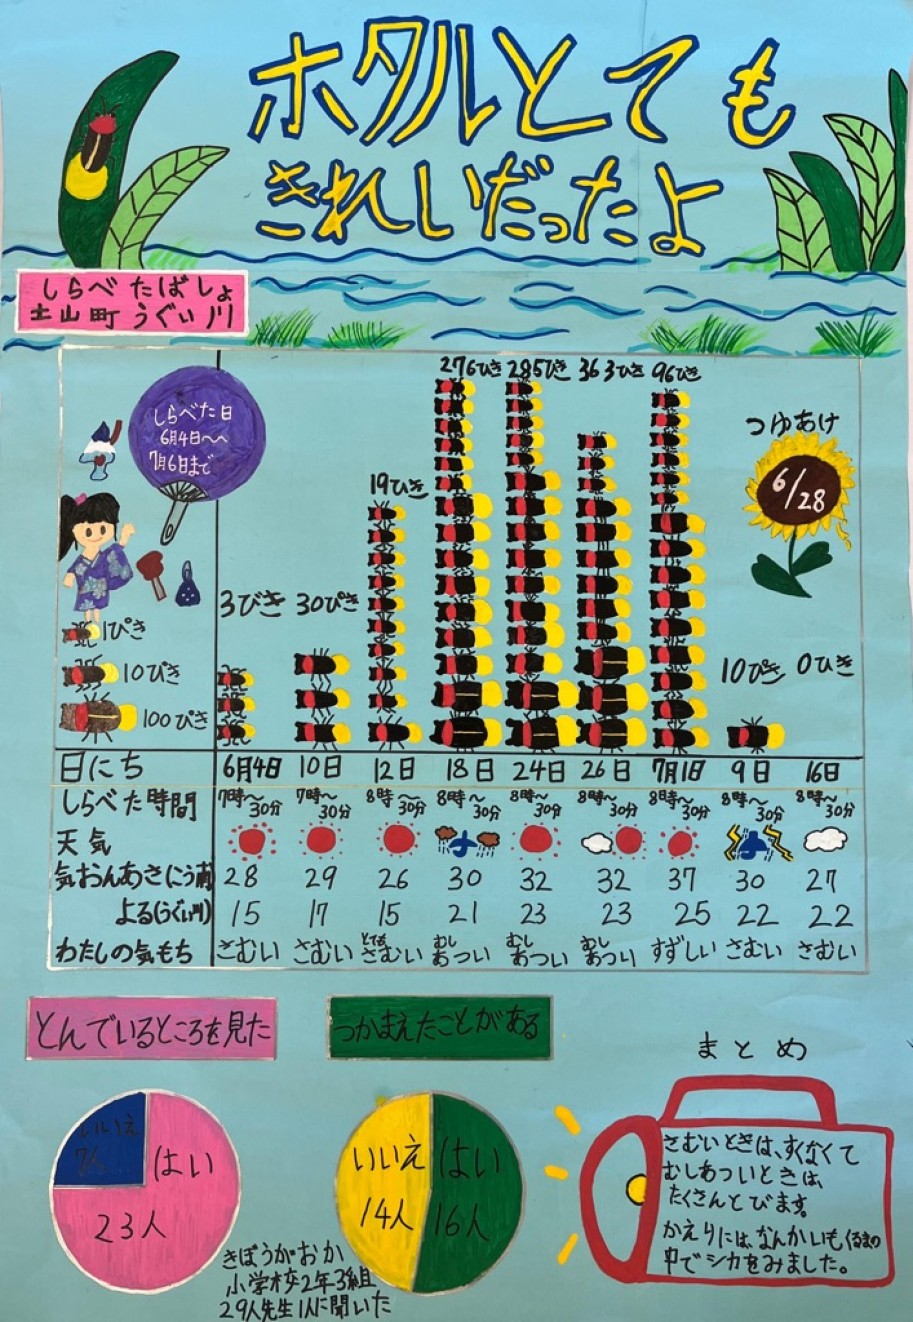 ホタルとても
きれいだったよ
しらべたばしょ
土山町うぐい川
しらべた日
6月4日〜
7月6日まで
1ぴき
10ぴき
100ぴき
3びき 30ぴき 19ひき 276ひき 285ひき 363びき 96ぴき 10ぴき 0ひき
つゆあけ
6/28
日にち 6月4日 10日 12日 18日 24日 26日 7月1日 9日 16日
しらべた時間 7時〜30分 7時〜30分 8時〜30分 8時〜30分 8時〜30分 8時〜30分 8時〜30分 8時〜30分 8時〜30分
天気
気おんあさ 28 29 26 30 32 32 37 30 27
よる(うぐい川) 15 17 15 21 23 23 25 22 22
わたしの気もち さむい さむい とてもさむい むしあつい むしあつい むしあつい すずしい さむい さむい
とんでいるところを見た
いいえ
7人
はい
23人
つかまえたことがある
いいえ
14人
はい
16人
きぼうがおか
小学校2年3組
29人先生1人に聞いた
まとめ
さむいときは、すくなくて
むしあついときは、
たくさんとびます。
かえりには、なんかいもくるまの
中でシカをみました。